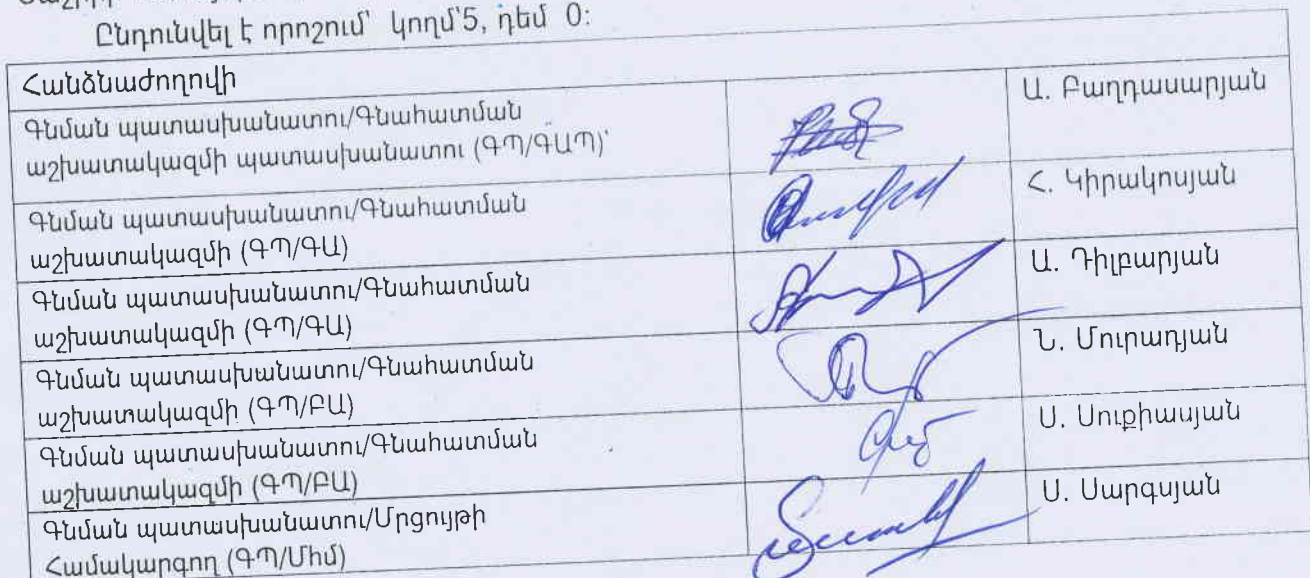 Ընդունվել է որոշում՝ կողմ՝5, դեմ 0:
Հանձնաժողովի
Գնման պատասխանատու/Գնահատման
աշխատակազմի պատասխանատու (ԳՊ/ԳԱՊ)՝
Ա. Բաղդասարյան
Գնման պատասխանատու/Գնահատման
աշխատակազմի (ԳՊ/ԳԱ)
Հ. Կիրակոսյան
Գնման պատասխանատու/Գնահատման
աշխատակազմի (ԳՊ/ԳԱ)
Ա. Դիլբարյան
Գնման պատասխանատու/Գնահատման
աշխատակազմի (ԳՊ/ԲԱ)
Ն. Մուրադյան
Գնման պատասխանատու/Գնահատման
աշխատակազմի (ԳՊ/ԲԱ)
Ս. Սուքիասյան
Գնման պատասխանատու/Մրցույթի
Համակարգող (ԳՊ/Մհմ)
Ս. Սարգսյան